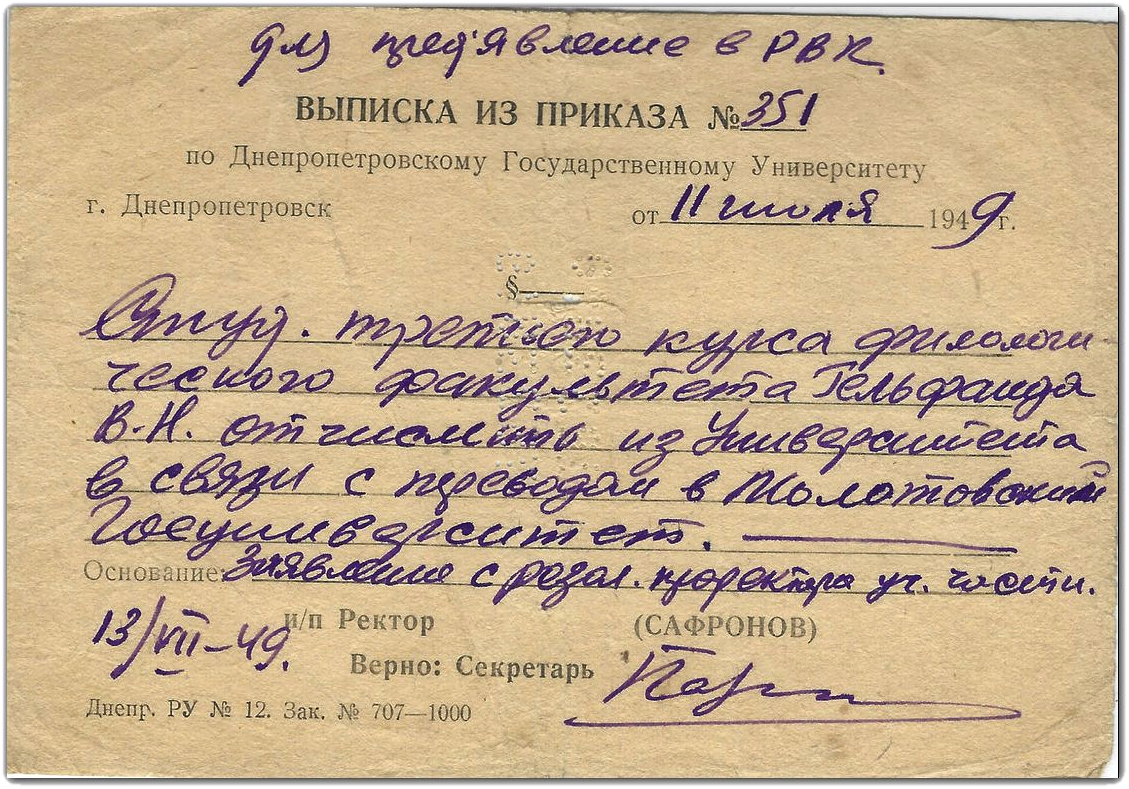 для пред'явление в РВК.
ВЫПИСКА ИЗ ПРИКАЗА № 351
по Днепропетровскому Государственному Университету
г. Днепропетровск от 11 июля 1949 г.
§
Студ. третьего курса филологи-
ческого факультета Гельфанда
В.Н. отчислить из Университета
в связи с переводом в Молотовский
Госуниверситет.
Основание: Заявление с резол. проректора уч. части.
и/п Ректор (САФРОНОВ)
13/VII-49.
Верно: Секретарь
Днепр. РУ № 12. Зак. № 707—1000